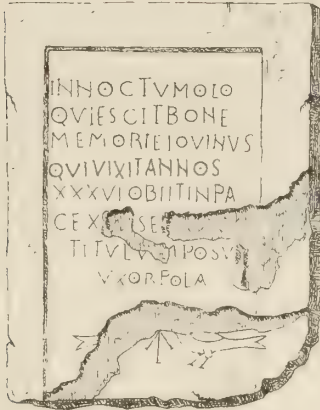 INNOCTVMOLO
QVIESCITBONE
MEMORIEIOVINVS
QVIVIXITANNOS
XXXVIOBIITINPA
CEX SE
TITVLVMPOSV
VXORFOLA